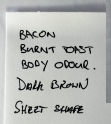 BACON
BURNT TOAST
BODY ODOUR.
DARK BROWN
SHEET SHAFE